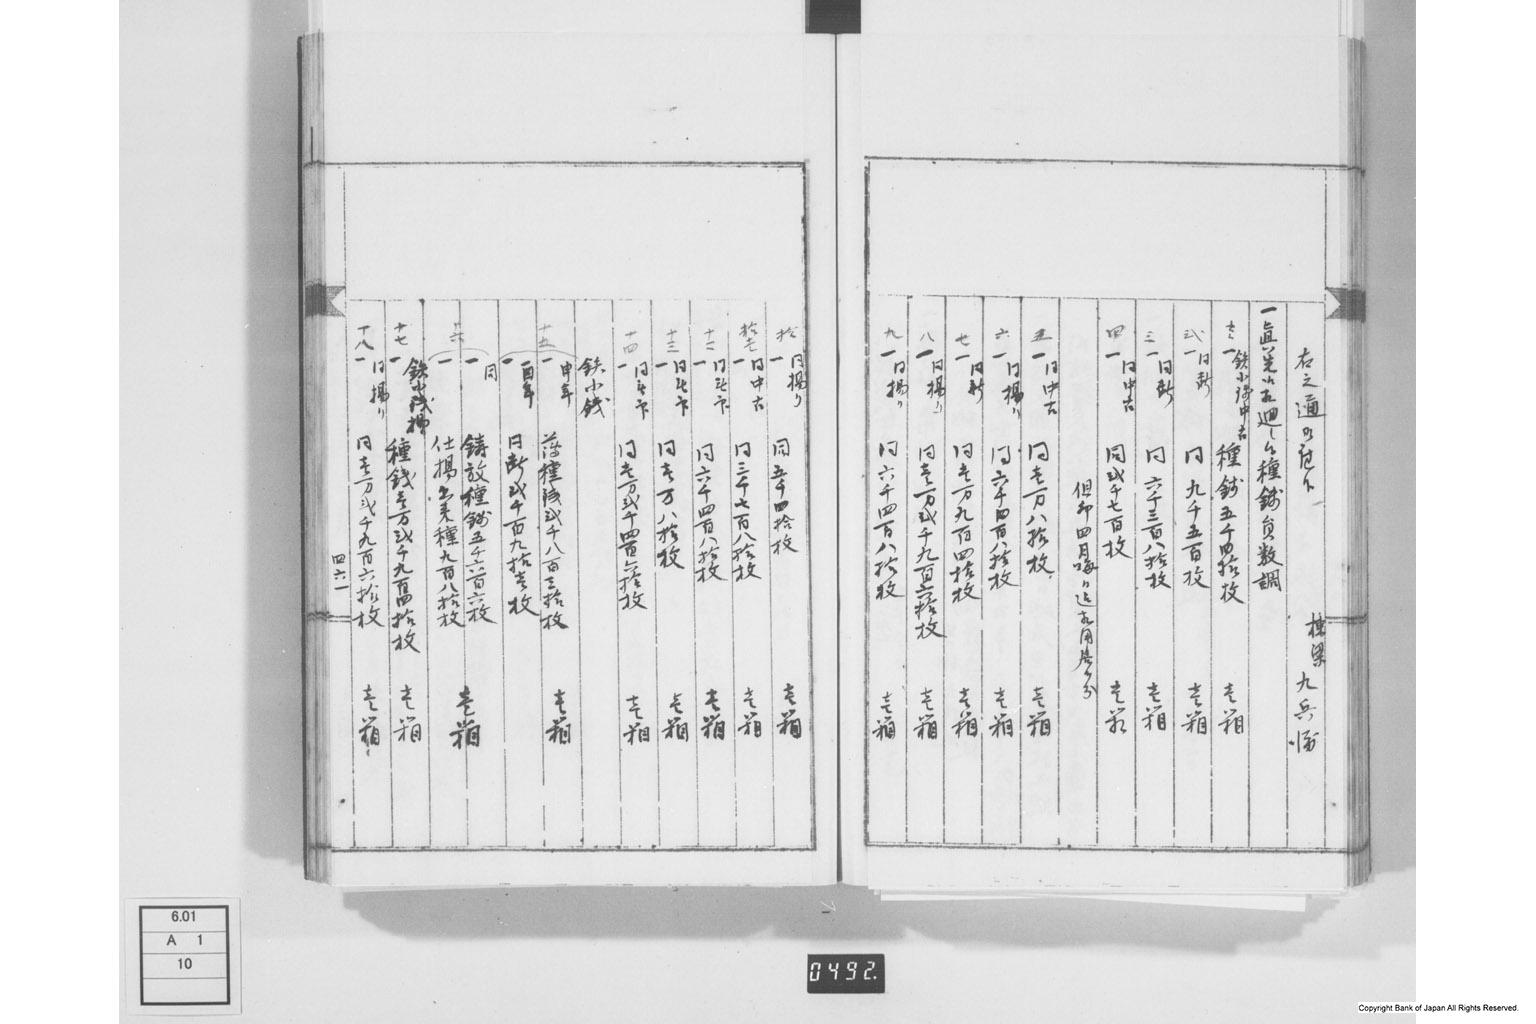 右之通
棟梁 九兵衛
種銭員数調
壱 一 鉄小銭中古 種銭五千四拾枚 壱箱
弐 一 同断 同 九千五百枚 壱箱
三 一 同断 同 六千三百八拾枚 壱箱
四 一 同中古 同弐千七百枚 壱箱
但卯四月
五 一 同中古 同壱万八拾枚 壱箱
六 一 同揚り 同六千四百八拾枚 壱箱
七 一 同断 同壱万九百四拾枚 壱箱
八 一 同揚り 同壱万弐千九百六拾枚 壱箱
九 一 同揚り 同六千四百八拾枚 壱箱
拾 一 同揚り 同五千四拾枚 壱箱
拾壱 一 同中古 同三千七百八拾枚 壱箱
十二 一 同 同六千四百八拾枚 壱箱
十三 一 同 同壱万八拾枚 壱箱
十四 一 同 同壱万弐千四百六拾枚 壱箱
鉄小銭
十五 一 申年 種銭弐千八百三拾枚 壱箱
一 酉年 同断弐千百九拾壱枚
十六 一 同 鋳放種銭五千六百六枚 壱箱
一 仕揚出来種九百八拾枚
十七 一 鉄小銭揚 種銭壱万弐千九百四拾枚 壱箱
十八 一 同揚り 同壱万弐千九百六拾枚 壱箱
四六一
6.01
A 1
10
0492.
Copyright Bank of Japan All Rights Reserved.